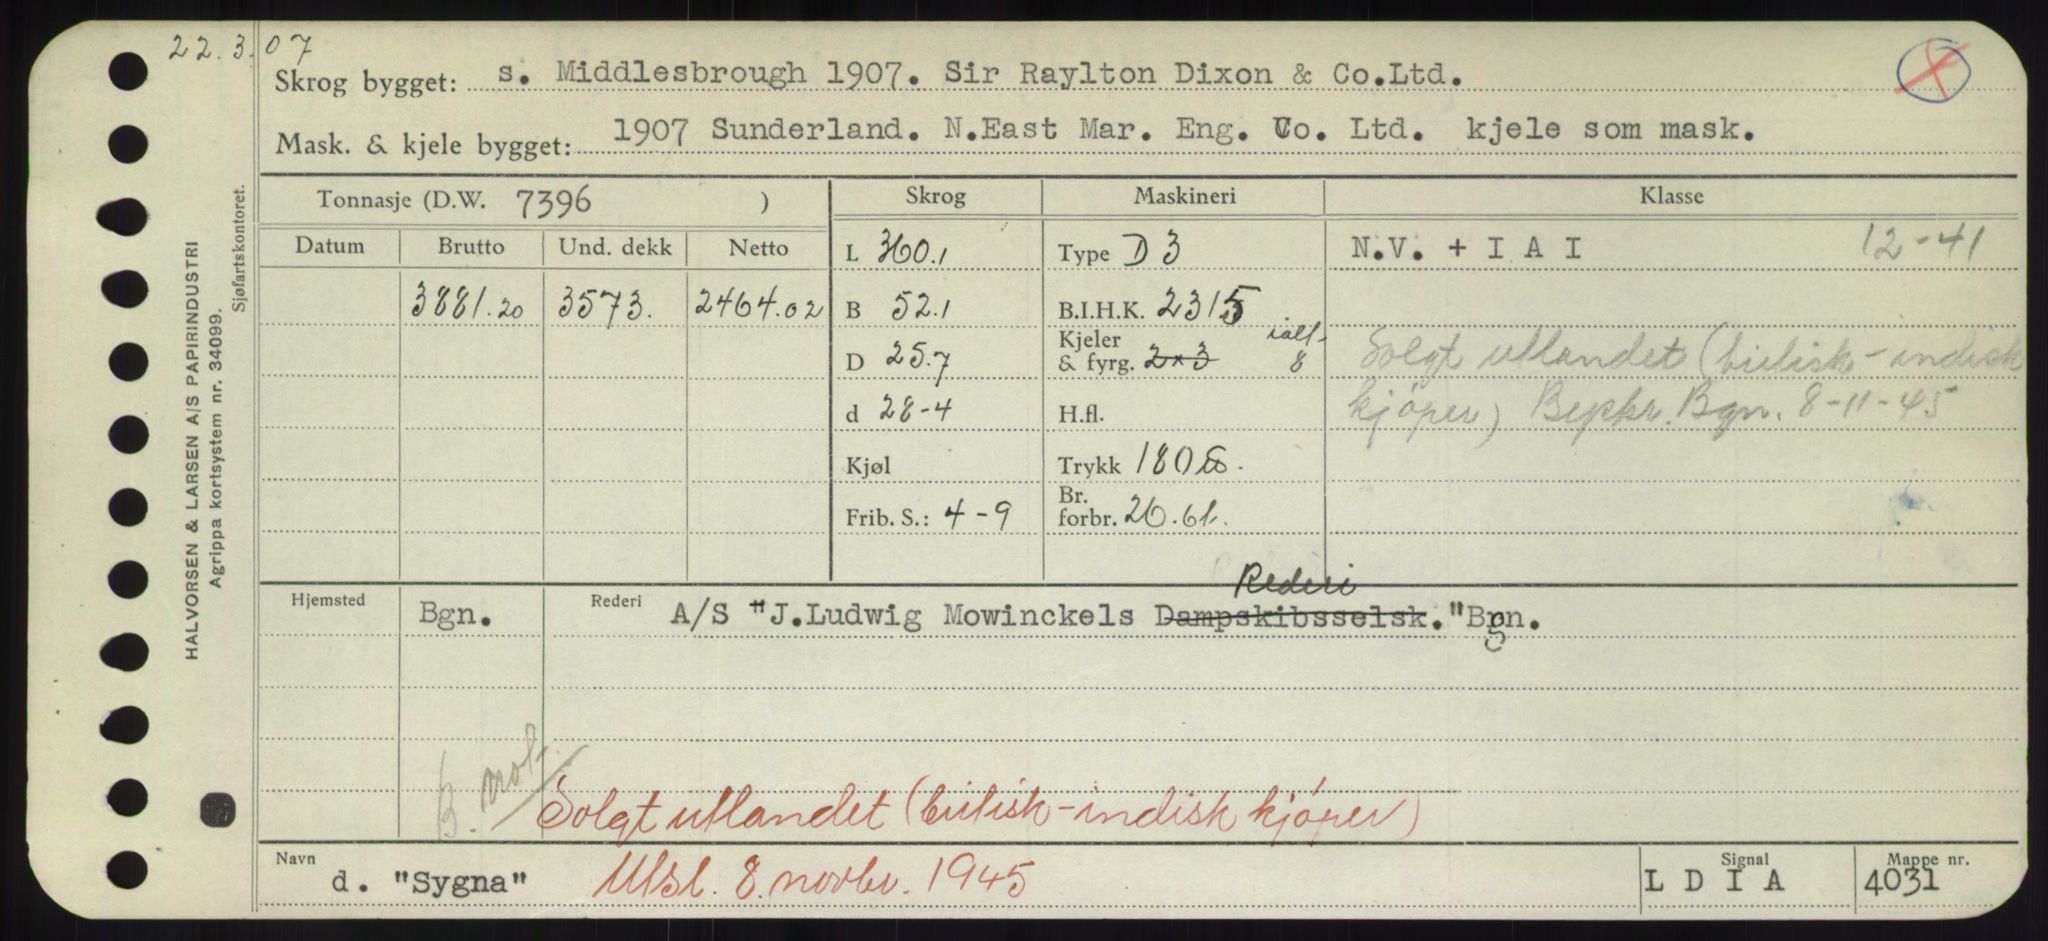 22.3.07
Skrog bygget: s. Middlesbrough 1907. Sir Raylton Dixon & Co.Ltd.
Mask. & kjele bygget: 1907 Sunderland. N.East Mar. Eng. Co. Ltd. kjele som mask.
Tonnasje (D.W. 7396 ) Skrog Maskineri Klasse
Datum Brutto Und. dekk Netto L 360.1 Type D 3 N.V. + I A I 12-41
3881.20 3573. 2464.02 B 52.1 B.I.H.K. 2315
D 25.7 Kjeler & fyrg. 2×3 ialt 8 Solgt utlandet (britisk-indisk
d 28-4 H.fl. kjøper) Bgn. 8-11-45
Kjøl Trykk 180
Frib. S.: 4-9 Br. forbr. 26.61.
Rederi
Hjemsted Bgn. Rederi A/S "J.Ludwig Mowinckels Dampskibsselsk."Bgn.
Solgt utlandet (britisk-indisk kjøper)
Navn d. "Sygna" 8. novbr. 1945 Signal L D I A Mappe nr. 4031
HALVORSEN & LARSEN A/S PAPIRINDUSTRI
Agrippa kortsystem nr. 34099.
Sjøfartskontoret.